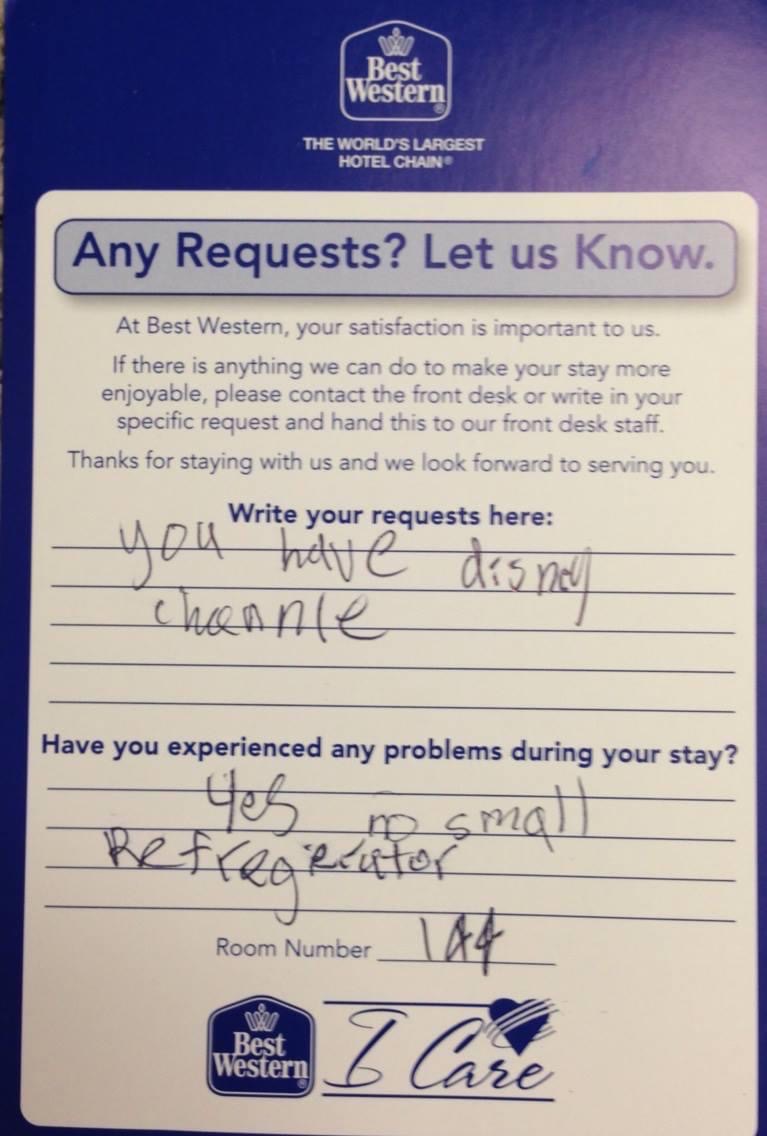 Best
Western
THE WORLD'S LARGEST
HOTEL CHAIN®
Any Requests? Let us Know.
At Best Western, your satisfaction is important to us.
If there is anything we can do to make your stay more
enjoyable, please contact the front desk or write in your
specific request and hand this to our front desk staff.
Thanks for staying with us and we look forward to serving you.
Write your requests here:
you have disney
channle
Have you experienced any problems during your stay?
Yes no small
Refregerator
Room Number 144
Best
Western
I Care